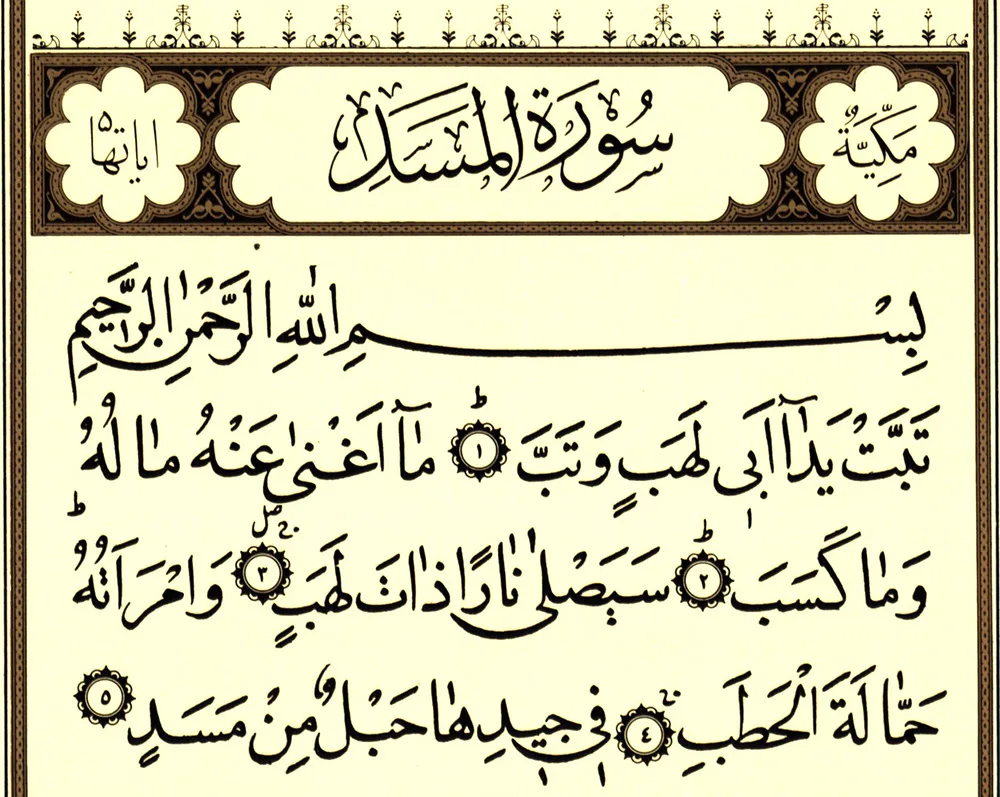 مَكِّيَّةٌ سُورَةُ الْمَسَدِ اياتها ٥
بِسْمِ اللّٰهِ الرَّحْمٰنِ الرَّحِيمِ
تَبَّتْ يَدَٓا اَبٖى لَهَبٍ وَتَبَّ ١ ط مَٓا اَغْنٰى عَنْهُ مَالُهُ
وَمَا كَسَبَ ٢ ط سَيَصْلٰى نَارًا ذَاتَ لَهَبٍ ٣ صل وَامْرَاَتُهُ ط
حَمَّالَةَ الْحَطَبِ ٤ فٖى جٖيدِهَا حَبْلٌ مِنْ مَسَدٍ ٥